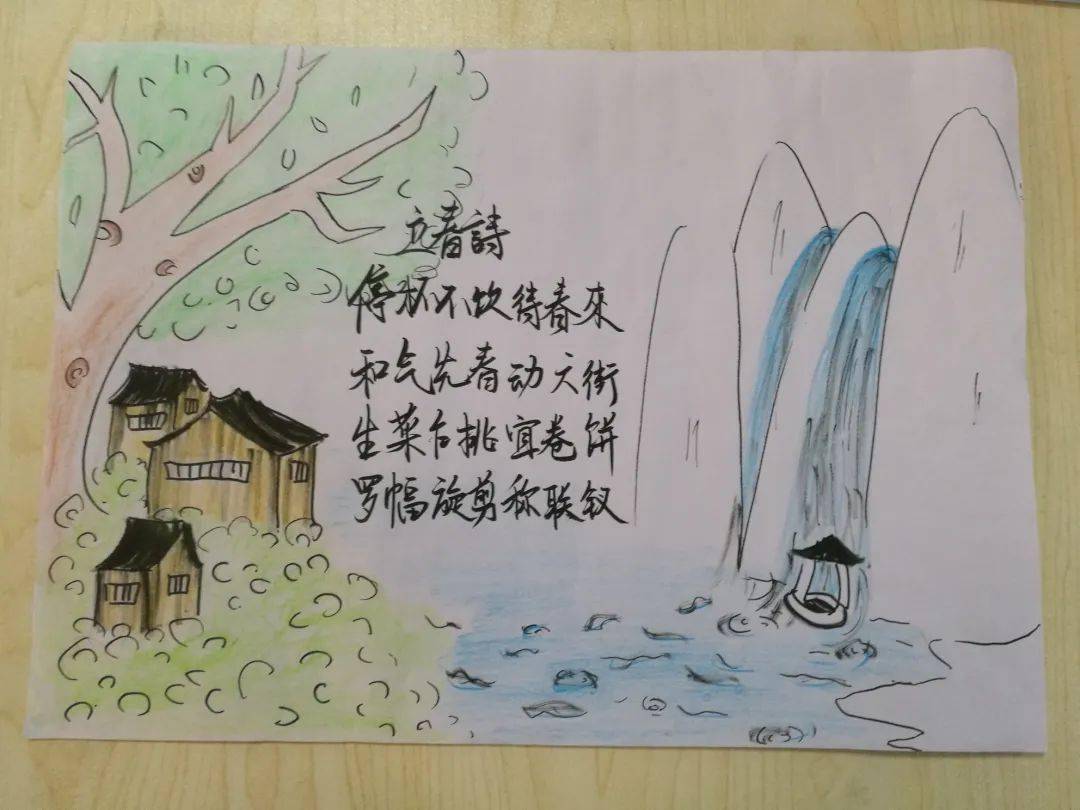 立春詩
停杯不饮待春來
和气先春动六街
生菜乍挑宜卷饼
罗幡旋剪称联钗